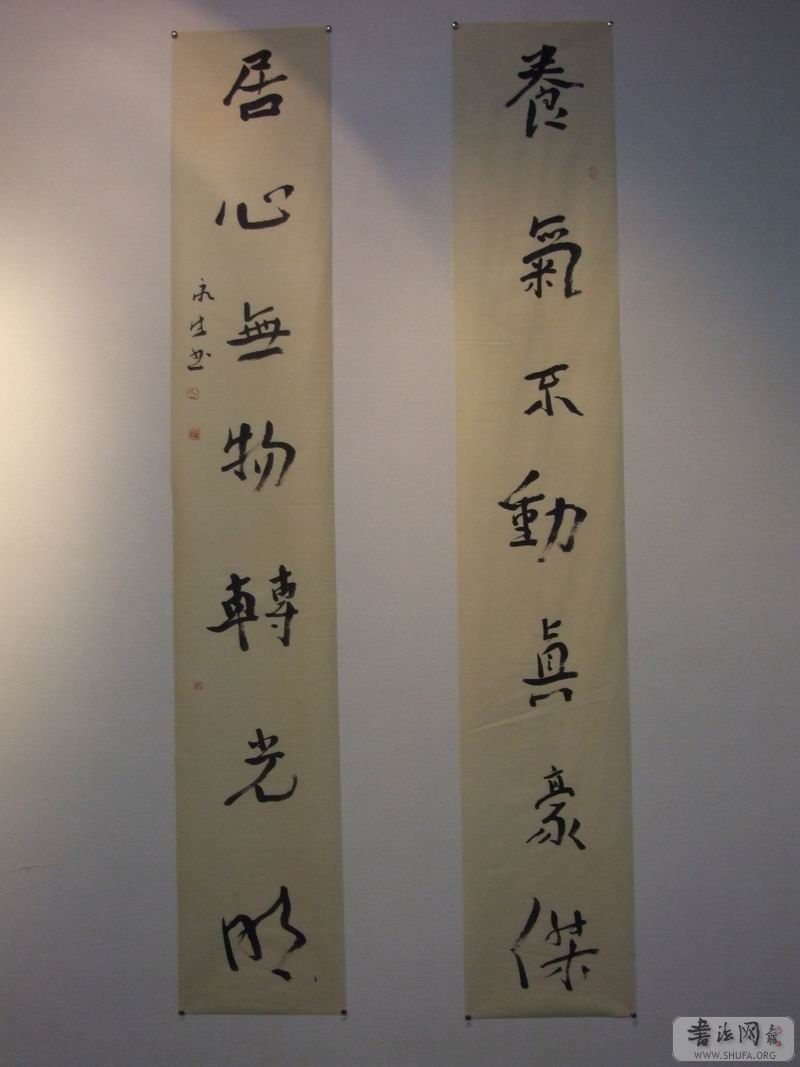 養氣不動真豪傑
居心無物轉光明
永生書
書法网
WWW.SHUFA.ORG